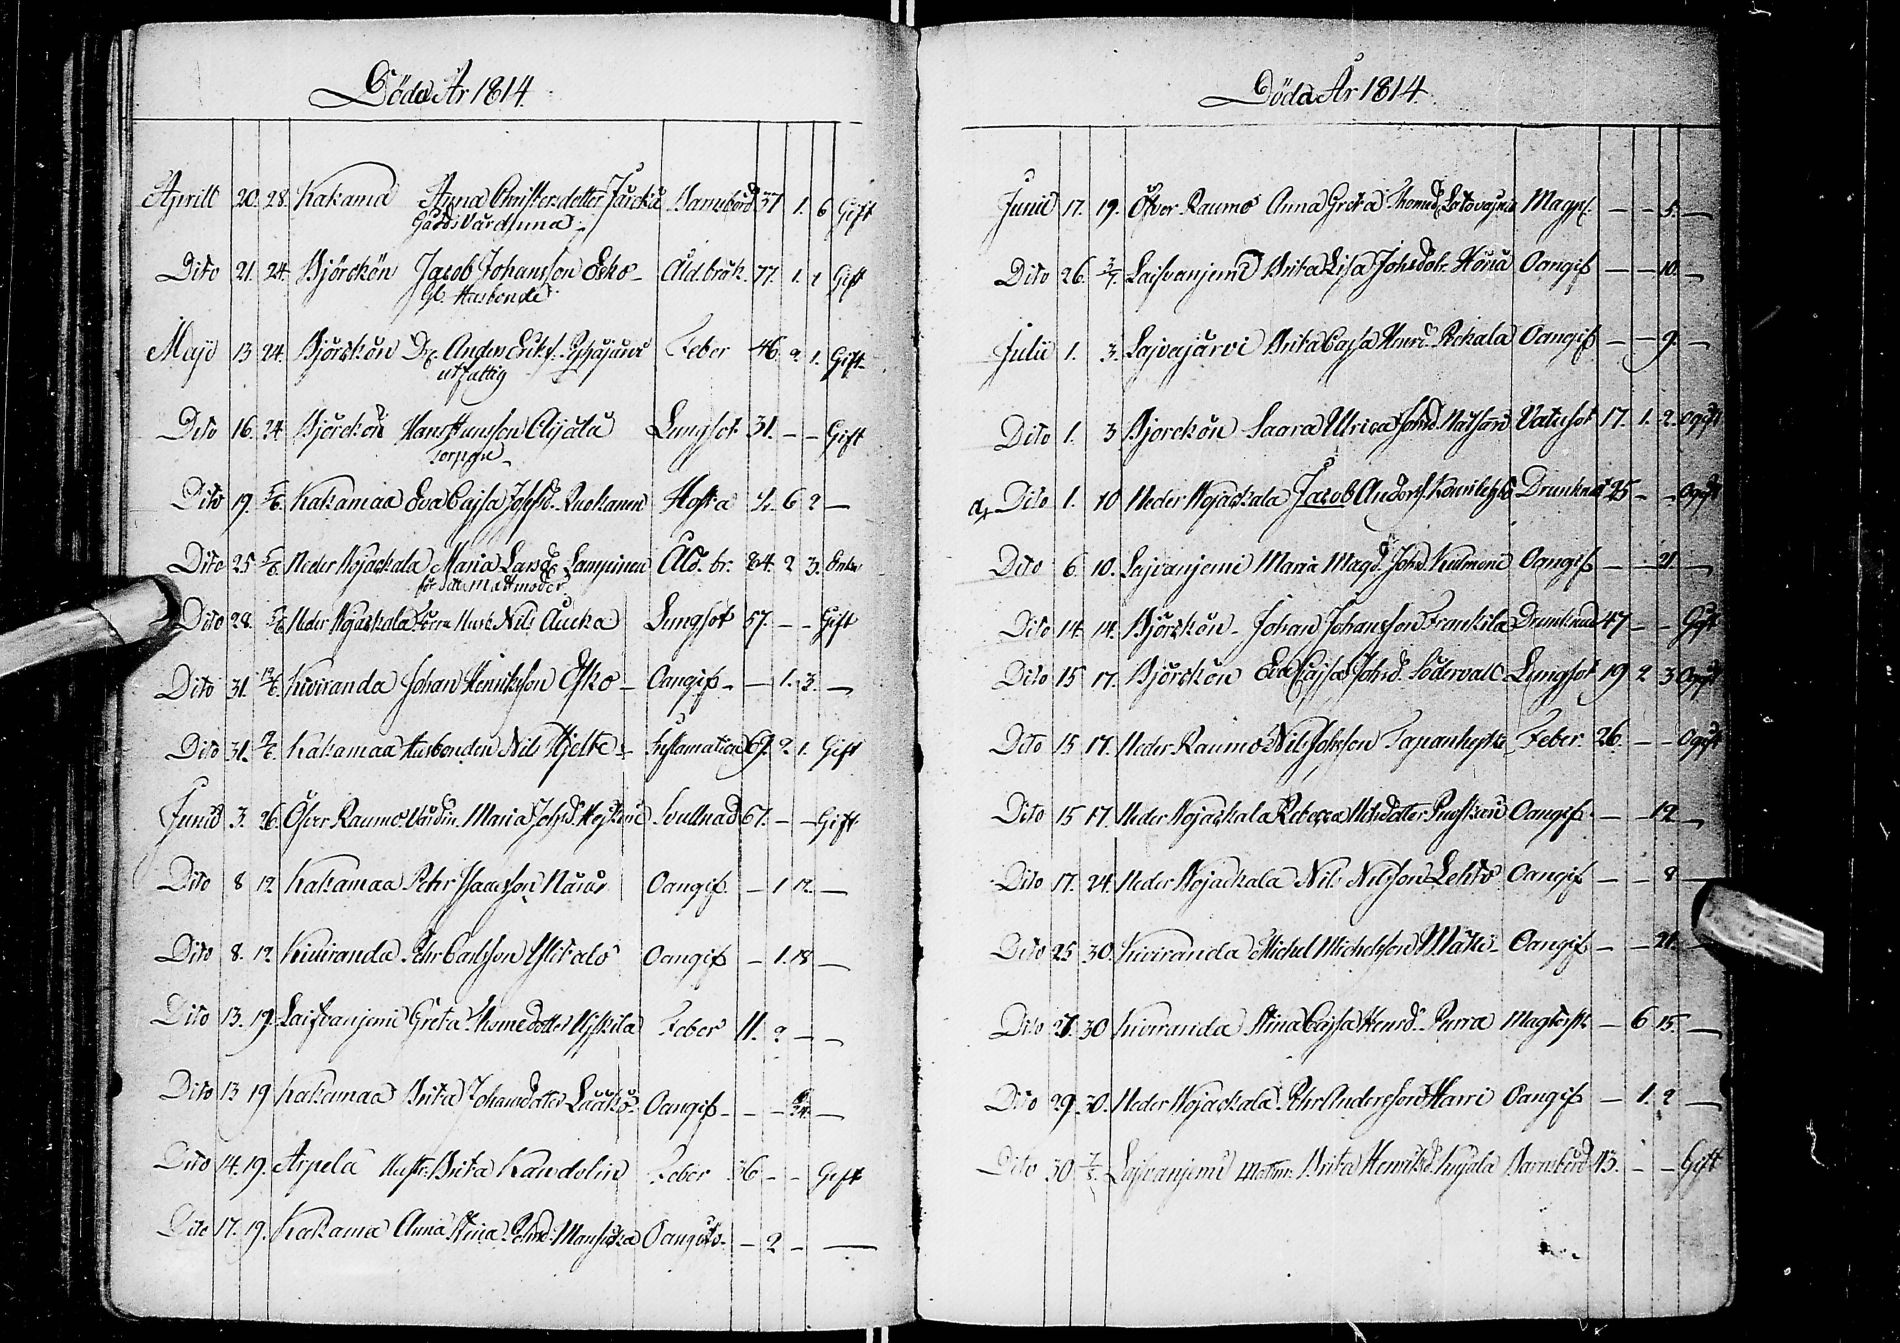 Döda År 1814.
Aprill 20. 28. Kakama Anna Christersdotter Barnsbörd 37 1. 6 Gift
Gårds Värdinna
Dito 21. 24. Björckön Jacob Johansson Esko Åld. bräk. 77. 1. 1 Gift
Gl. Husbonde
Maji 13 24. Björckön Anders Feber 46. 2. 1. Gift
utfattig
Dito 16. 24. Björckön Hans Hansson Alijala Lungsot 31. - - Gift
Dito 19. 5/6. Kakamaa Eva Cajsa Johsd. Ruokanen Hosta 4. 6 2 —
Dito 25 5/6. Neder Wojackala Maria Larsd. Lampinen Åld. br. 84. 2 3. Enka
Dito 28. 5/6 Neder Wojackala Nils Aucka Lungsot 57. - - Gift
Dito 31. 12/6. Kiviranda Johan Henriksson Esko Oangif. — 1. 3. —
Dito 31. Kakamaa Husbonden Nils Hjelte Inflamation 69. 2. 1. Gift
Junii 3. 26. Öfver Raumo Värdin. Maria Johsd. Svullnad 67. - - Gift
Dito 8 12 Kakamaa Petr Isaacsson Näräs Oangif. - 1 12. —
Dito 8. 12 Kiviranda Pehr Carlsson Ylitalo Oangif - 1. 18 —
Dito 13. 19. Laifvanjemi Greta Thomedotter Yliskila Feber 11. 2 - —
Dito 13 19 Kakamaa Brita Johansdotter Laakso Oangif. - - —
Dito 14. 19. Arpela Hustr. Brita Kandelin Feber 36 - - Gift
Dito 17. 19. Kakama Anna Stina Oangifs. - 2 - —
Döda År 1814.
Junii 17. 19. Öfver Raumo Anna Greta Thomsd. — - 5. —
Dito 26. 2/7. Laifvanjemi Brita Lisa Johsdotr. Oangif — - 10. —
Julii 1. 3. Laivajärvi Brita Cajsa Henrd. Rekala Oangif — - 9. —
Dito 1. 3 Bjorckön Saara Ulrica Johsd. Vatusot 17. 1. 2. Ogift
Dito 1. 10 Neder Wojackala Jacob Anderss. Drunknat 25 - - Ogift
Dito 6. 10. Laivanjemi Maria Magd. Johsd. Oangif — - 21. —
Dito 14. 14. Björckön Johan Johansson Frankila Drunknad 47 - - Gift
Dito 15 17. Björckön Eva Cajsa Johsd. Södervall Lungsot 19 2 3 Ogift
Dito 15 17. Neder Raumo Nils Johsson Feber 26. - - Ogift
Dito 15 17. Neder Wojackala Rebecca Nilsdotter Oangif. — - 12 —
Dito 17. 24. Neder Wojackala Nils Nilsson Lehto Oangif — - 8 —
Dito 25 30. Kiviranda Michel Michelsson Oangif — - 21. —
Dito 27. 30 Kiviranda Stina Cajsa Henrsd. Purra — 6 15. —
Dito 29. 30. Neder Wojackala Pehr Andersson Harri Oangif — 1. 2 —
Dito 30 Laifvanjemi Brita Henriksd. Barnsbörd 43. - - Gift